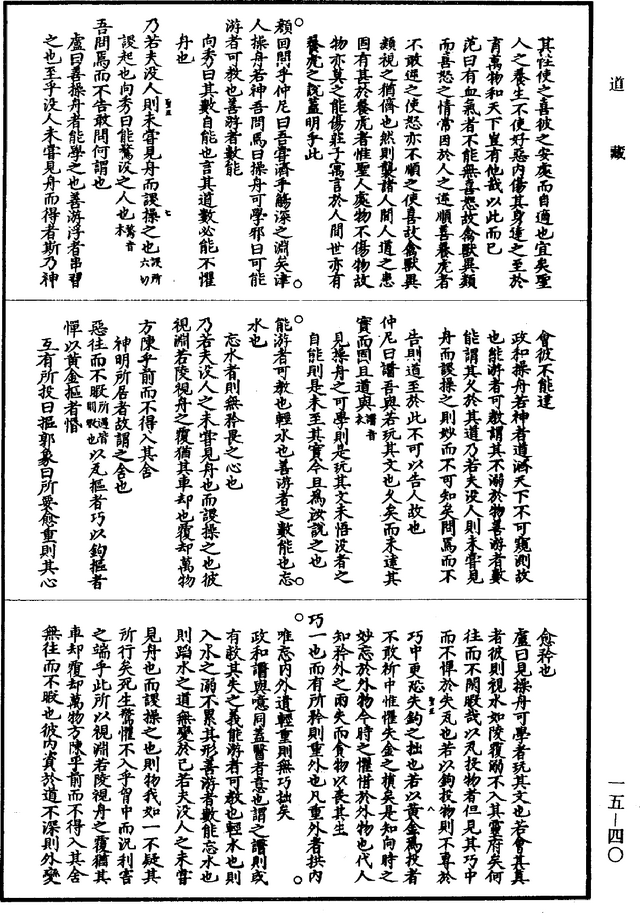 道藏
其任使之喜彼之安處而自適也宜矣聖
人之養生不使好惡內傷其身達之至於
育萬物和天下豈有他哉以此而已
范曰有血氣者不能無喜怒故禽獸異類
而喜怒之情常因於人之逆順喜養虎者
不敢逆之使怒亦不順之使喜故禽獸異
類視之猶儕也然則襲諸人間人道之患
固有其於養虎者惟聖人處物不傷物故
物亦莫之能傷莊子寓言於人間世亦有
養虎之說蓋明乎此
顏回問乎仲尼曰吾嘗濟乎觴深之淵矣津
人操舟若神吾問焉曰操舟可學邪曰可能
游者可教也善游者數能
向秀曰其數自能也言其道數必能不懼
舟也
乃若夫没人則未嘗見舟而謖操之也謖所六切
謖起也向秀曰能鶩没之人也鶩音木
吾問焉而不告敢問何謂也
盧曰善操舟者能學之也善游浮者串習
之也至乎没人未嘗見舟而得者斯乃神
會彼不能達
政和操舟若神者道濟天下不可窺測故
也能游者可教謂其不溺於物善游者數
能謂其久於其道乃若夫没人則未嘗見
舟而謖操之則妙而不可知矣問焉而不
告則道至於此不可以告人故也
仲尼曰譆吾與若玩其文也久矣而未達其
實而固且道與譆音衣
見操舟之可學則是玩其文未悟没者之
自能則是未至其實今且為汝說之也
能游者可教也輕水也善游者之數能也忘
水也
忘水者則無矜畏之心也
乃若夫没人之未嘗見舟也而謖操之也彼
視淵若陵視舟之覆猶其車却也覆却萬物
方陳乎前而不得入其舍
神明所居者故謂之舍也
惡往而不暇所遇皆閒暇也以瓦摳者巧以鉤摳者
憚以黃金摳者惛
互有所投曰摳郭象曰所要愈重則其心
愈矜也
盧曰見操舟可學者玩其文也若會其真
者彼則視水如陵覆溺不入其靈府矣何
往而不閑暇哉以瓦投物者但見其巧中
而不憚於失瓦也若以鉤投物則不專於
巧中更恐失鉤之拙也若以黃金為投者
不敢祈中惟懼失金之損矣是知向時之
妙忘於外物今時之懼惜於外物也代人
知矜外之兩失而貪物以喪其生
巧一也而有所矜則重外也凡重外者拱内
唯忘内外遺輕重則無巧拙矣
政和譆與噫同蓋醫者意也謂之譆則或
有駭其失之義能游者可教也輕水也則
入水之溺不累其形善游者數能忘水也
則蹈水之道無變於已若夫没人之未嘗
見舟也而謖操之也則物我如一不疑其
所行矣死生驚懼不入乎胷中而況利害
之端乎此所以視淵若陵視舟之覆猶其
車却覆却萬物方陳乎前而不得入其舍
無往而不暇也彼内資於道不深則外變
一五－四〇